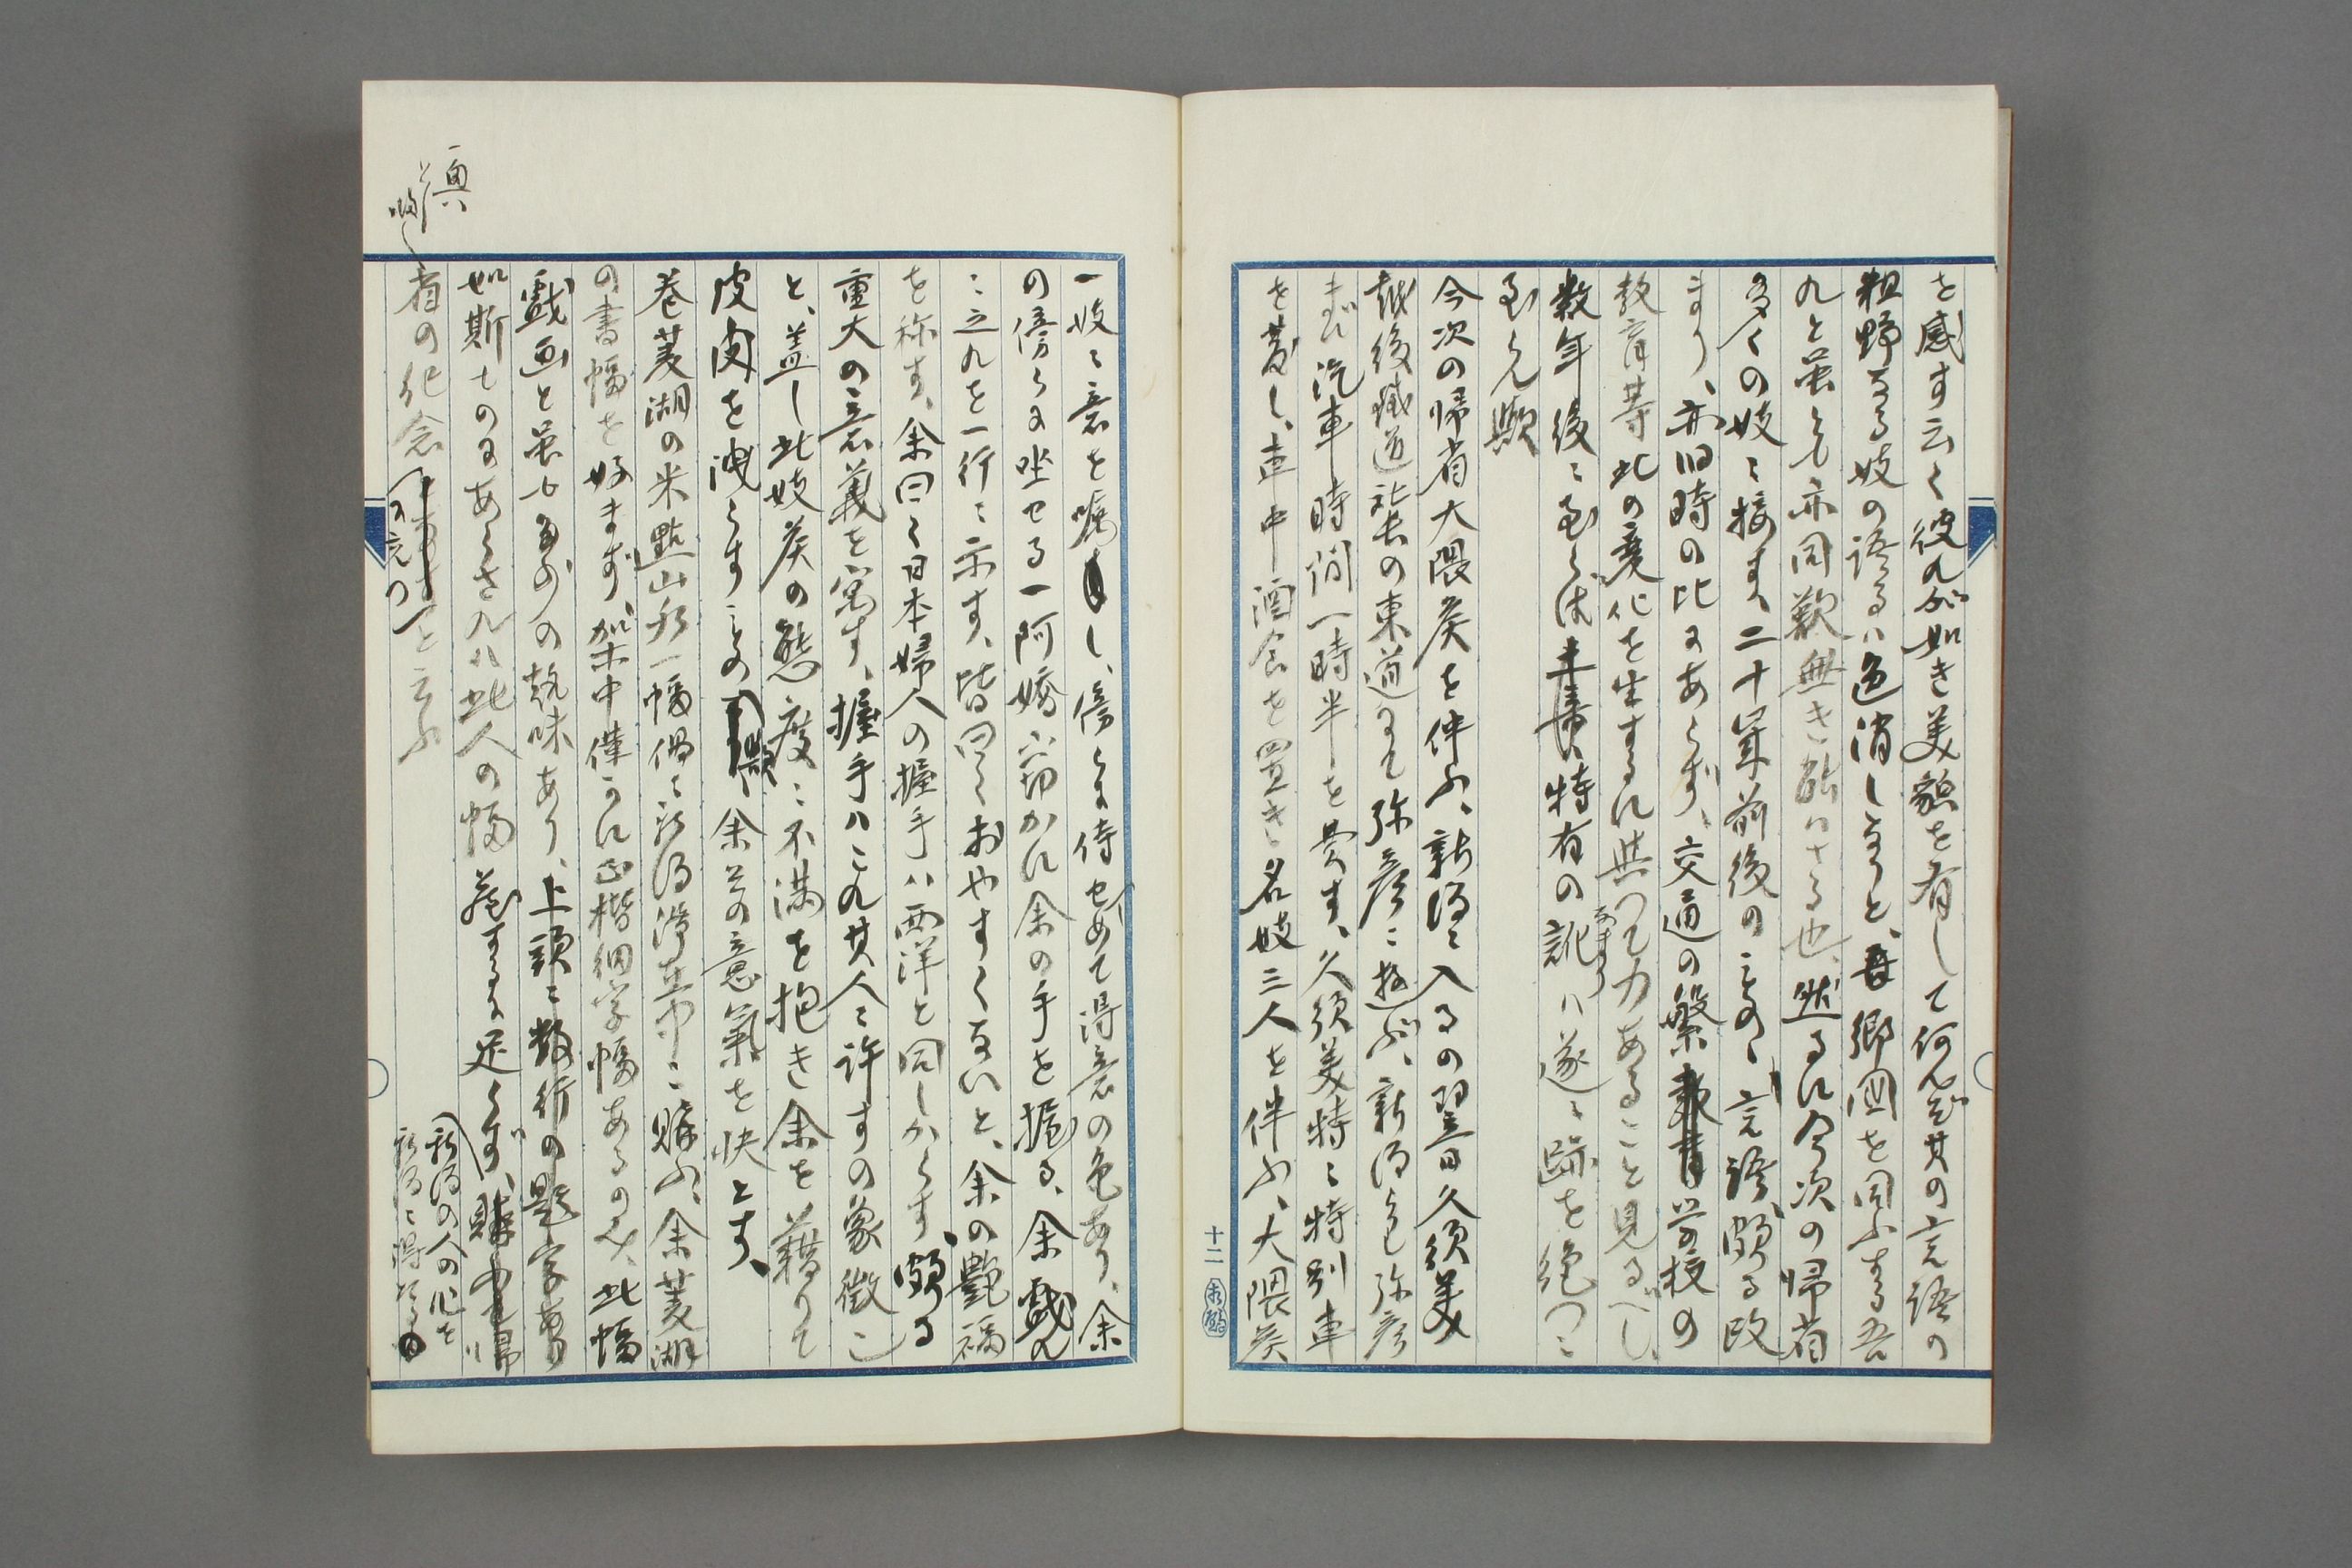 を感す云く彼れが如き美貌を有して何んぞ其の言語の
粗野なる妓の語るハ色消しなりと、吾郷国を同ふする吾
れと虽とも亦同歎無き能ハさる也、然るに今次の帰省
多くの妓ニ接す、二十年前後のことの、言語頗る改
まり、亦旧時の比にあらず、交通の繁学校の
教育等此の変化を生するに与つて力あること見るべし、
数年後ニ至らは特有の訛ハ遂ニ跡を絶つニ
至らん歟
今次の帰省大隈侯を伴ふ、新潟ニ入るの翌日久須美
越後鉄道社長の東道にて弥彦ニ遊ぶ、新潟より弥彦
まで汽車時間一時半を要す、久須美特ニ特別車
を発し、車中酒食を置き名妓三人を伴ふ、大隈侯
十二
一妓ニ意を嘱し、傍らに侍せしめて得意の色あり、余
の傍らに坐せる一阿嬌窃かに余の手を握る、余戯れ
ニ之れを一行ニ示す、皆曰くおやすくないと、余の艶福
を称す、余曰く日本婦人の握手ハ西洋と同しからす、頗る
重大の意義を寓す、握手ハこれ其人ニ許すの象徴
と、蓋し此妓侯の態度ニ不満を抱き余を藉りて
皮肉を洩らすもの歟、余其の意氣を快とす、
巻菱湖の米點山水一幅偶ニ新潟ニ購ふ、余菱湖
の書幅を好まず架中僅かに正楷細字幅あるのみ、此幅
戯画と虽も多少の趣味あり、上頭ニ数行の題字あり
如斯ものにあらされハ此人の幅蔵するに足らず、
省の紀念と云ふ